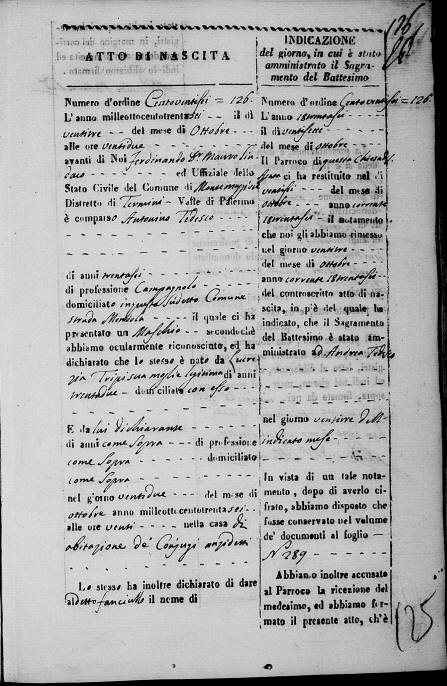 126
ATTO DI NASCITA
Numero d'ordine Centoventisei = 126.
L'anno milleottocentotrentasei il dì
ventitre del mese di Ottobre
alle ore ventidue
avanti di Noi Ferdinando Dr Mauro Sin
daco ed Uffiziale dello
Stato Civile del Comune di Montemaggiore
Distretto di Termini Valle di Palermo
è comparso Antonino Tedesco
di anni trentasei
di professione Campagnolo
domiciliato in questo sudetto Comune
strada il quale ci ha
presentato un Maschio secondochè
abbiamo ocularmente riconosciuto, ed ha
dichiarato che lo stesso è nato da
sua moglie legitima di anni
trentadue domiciliata con esso
E da lui dichiarante
di anni come Sopra di professione
come Sopra domiciliato
come Sopra
nel giorno ventidue del mese di
ottobre anno milleottocentotrentasei
alle ore venti nella casa di
abitazione de' Conjugi anzidetti
Lo stesso ha inoltre dichiarato di dare
al detto fanciullo il nome di
INDICAZIONE
del giorno, in cui è stato
amministrato il Sagra-
mento del Battesimo
Numero d'ordine Centoventisei = 126.
L'anno 18trentasei
il dì ventisette
del mese di Ottobre
Il Parroco di questa Chiesa
ci ha restituito nel dì
ventisei del mese di
ottobre anno corrente
18trentasei il notamento
che noi gli abbiamo rimesso
nel giorno ventitre
del mese di Ottobre
anno corrente 18trentasei
del controscritto atto di na-
scita, in piè del quale ha
indicato, che il Sagramento
del Battesimo è stato am-
ministrato ad Andrea Tedesco
nel giorno ventitre d
indicato mese
In vista di un tale nota-
mento, dopo di averlo ci-
frato, abbiamo disposto che
fosse conservato nel volume
de' documenti al foglio
N. 289
Abbiamo inoltre accusato
al Parroco la ricezione del
medesimo, ed abbiamo for-
mato il presente atto, ch'è
125